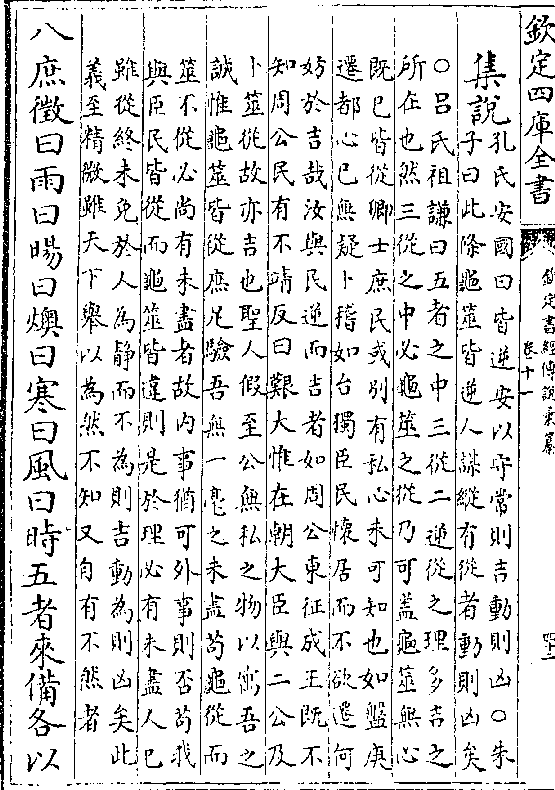 欽定四庫全書
欽定書經傳說彙纂
卷十一
集說
孔氏安國曰皆逆安以守常則吉動則凶○朱
子曰此條龜筮皆逆人謀縱有從者動則凶矣
○呂氏祖謙曰五者之中三從二逆從之理多吉之
所在也然三從之中必龜筮之從乃可蓋龜筮無心
既已皆從卿士庶民或別有私心未可知也如盤庚
遷都心已無疑卜稽如台獨臣民懷居而不欲遷何
妨於吉哉汝與民逆而吉者如周公東征成王既不
知周公民有不靖反曰艱大惟在朝大臣與二公及
卜筮從故亦吉也聖人假至公無私之物以寓吾之
誠惟龜筮皆從庶足驗吾無一毫之未盡苟龜從而
筮不從必尚有未盡者故内事猶可外事則否苟我
與臣民皆從而龜筮皆違則是於理必有未盡人已
雖從終未免於人為静而不為則吉動為則凶矣此
義至精微雖天下舉以為然不知又自有不然者
八庶徵曰雨曰暘曰燠曰寒曰風曰時五者來備各以